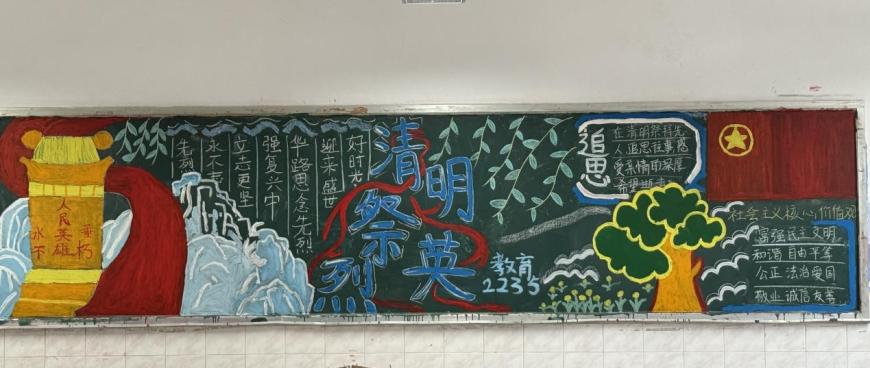 人民英雄
永垂
不朽
好时光
迎来盛世
华路思念先烈
强复兴中
立志更坚
永不忘
先烈
清明
祭英
烈
教育
2235
追思
在清明祭拜先
人追思往事感
受亲情的深厚
社会主义核心价值观
富强民主文明
和谐 自由平等
公正 法治爱国
敬业 诚信友善